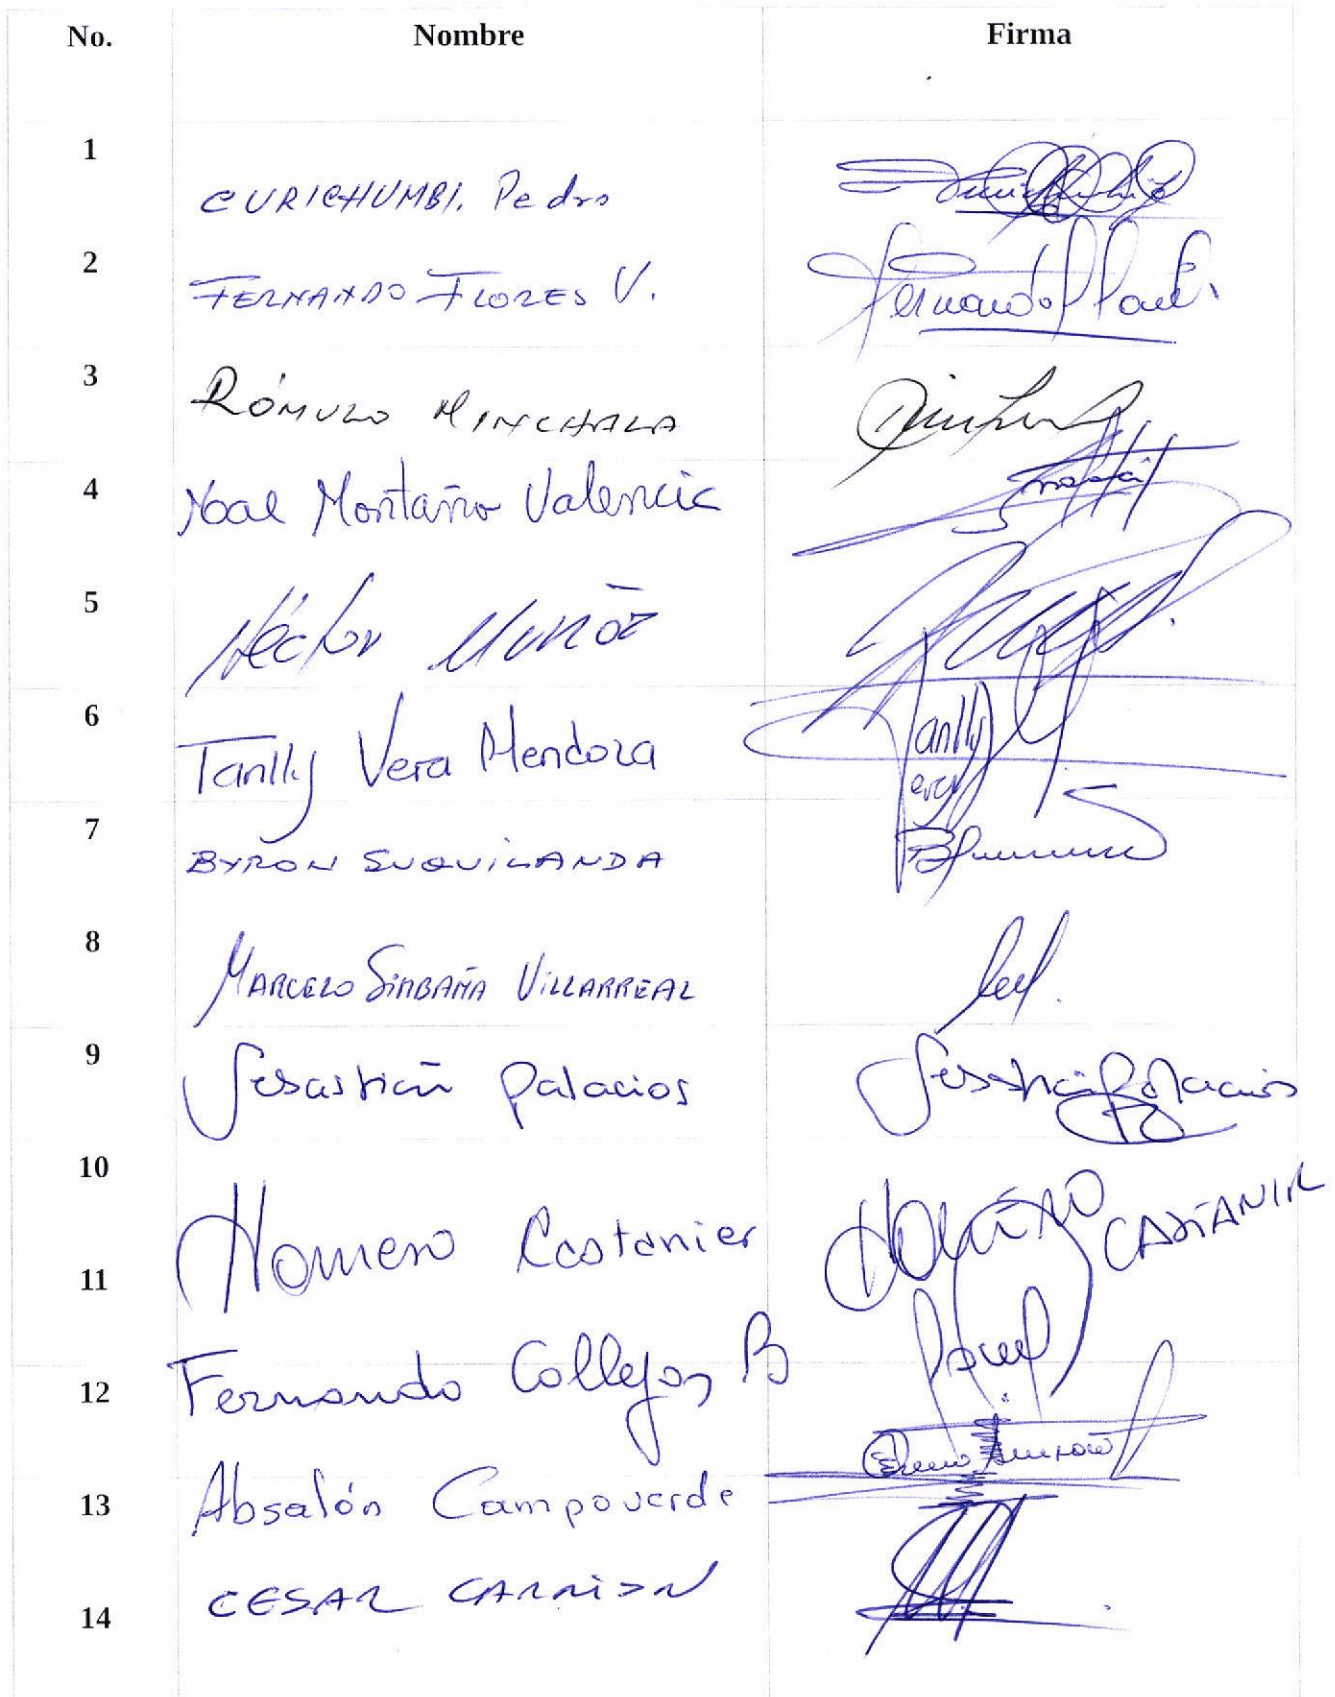 No. Nombre Firma
1
CURICHUMBI, Pedro
2
FERNANDO FLORES V. Fernando
3
RÓMULO MINCHALA
4
Noal Montaño Valencia
5
Héctor Muñoz
6
Tanlly Vera Mendoza Tanlly
7
BYRON SUQUILANDA
8
MARCELO SIMBAÑA VILLARREAL
9
Sebastián Palacios Sebastián Palacios
10
Homero Castanier Homero CASTANIER
11
Fernando Callejas B
12
Absalón Campoverde
13
CESAR CARRION
14